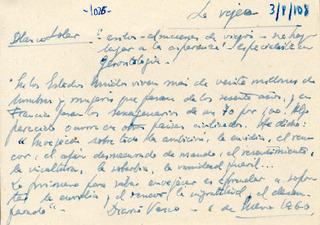 -1025-
La vejez 3/8/108
Blanco Soler "asilos - almacenes de viejos - no hay
lugar a la esperanza" especialista en
Gerontología -
"En los Estados Unidos viven más de veinte millones de
hombres y mujeres que pasan de los sesenta años, y en
Francia pasan los sexagenarios de un 70 por 100. Algo
parecido ocurre en otros países civilizados. He dicho:
"Envejece sobre todo la ambición, la envidia, el ren
cor, el afán desmesurado de mando, el resentimiento,
la soberbia, la vanidad pueril...
lo primero para saber envejecer es aprender a sopor
tar la envidia, el rencor, la ingratitud, el desam
paro" - Diario Vasco - 6 de Enero 1960